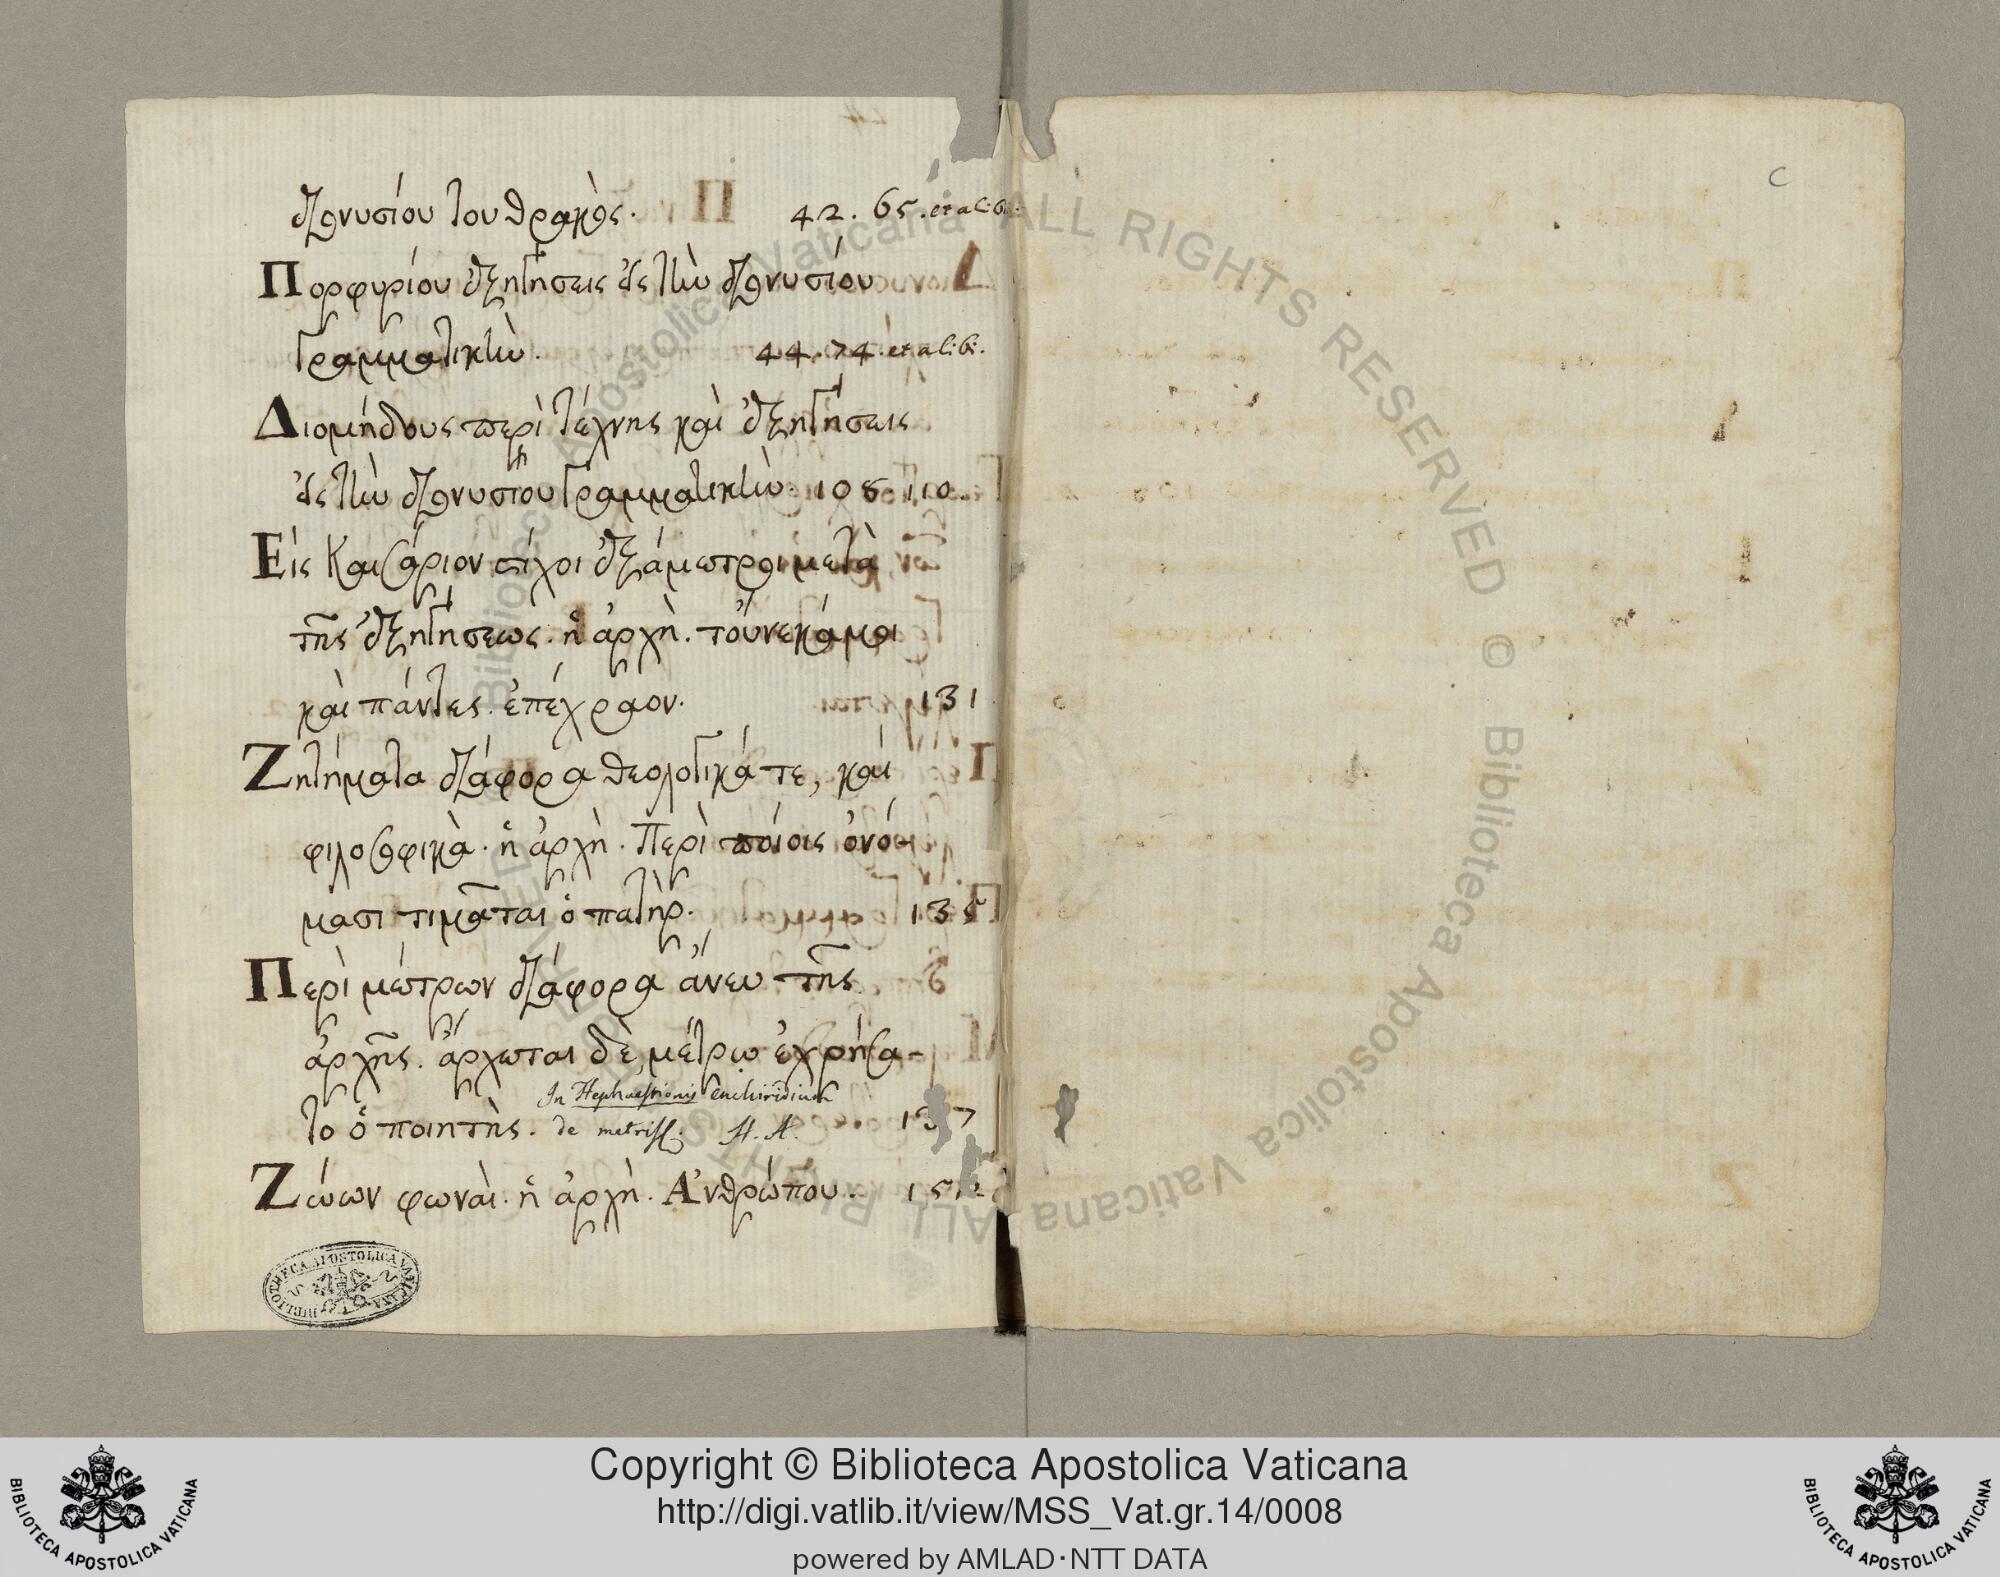 διονυσίου τοῦ θρακός. 42. 65. et alibi
Πορφυρίου ἐξηγήσεις εἰς τὴν διονυσίου
γραμματικὴν. 44. 74. et alibi.
Διομήδους περὶ τέχνης καὶ ἐξηγήσεις
εἰς τὴν διονυσίου γραμματικὴν. 108 110.
Εἰς Καισάριον στίχοι ἑξάμετροι μετὰ
τῆς ἐξηγήσεως. ἡ ἀρχὴ. τοὔνεκά μοι
καὶ πάντες ἐπέχραον. 131
Ζητήματα διάφορα θεολογικά τε, καὶ
φιλοσοφικὰ. ἡ ἀρχὴ. Περὶ ποίοις ὀνό-
μασι τιμᾶται ὁ πατὴρ. 135
Περὶ μέτρων διάφορα ἄνευ τῆς
ἀρχῆς. ἄρχεται δὲ, μέτρω ἐχρήσα-
In Hephaestionis enchiridium
το ὁ ποιητὴς. de metris. H. A. 137
Ζώων φωναὶ. ἡ ἀρχὴ. Ἀνθρώπου.
BIBLIOTHECA APOSTOLICA VATICANA
c
Biblioteca Apostolica Vaticana ALL RIGHTS RESERVED ©
Copyright © Biblioteca Apostolica Vaticana
http://digi.vatlib.it/view/MSS_Vat.gr.14/0008
powered by AMLAD·NTT DATA
BIBLIOTECA APOSTOLICA VATICANA
BIBLIOTECA APOSTOLICA VATICANA